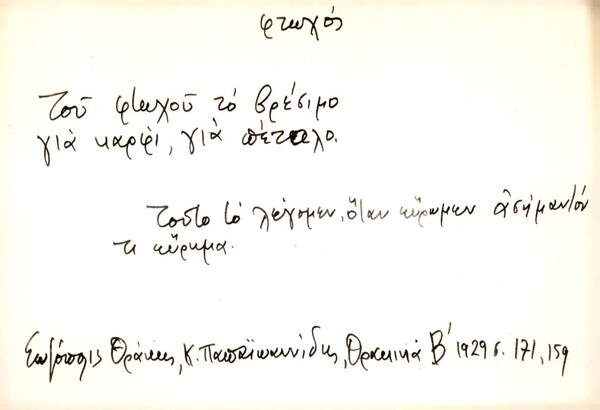 φτωχός
Τοῦ φτωχοῦ τό βρέσιμο
γιὰ καρφὶ, γιὰ πέταλο.
Τοῦτο τό λέγομεν, ὅταν εὕρωμεν ἀσήμαντόν
τι εὕρημα.
Σωζόπολις Θράκης, Κ. Παπαϊωαννίδης, Θρακικά Β' 1929 σ. 171, 159